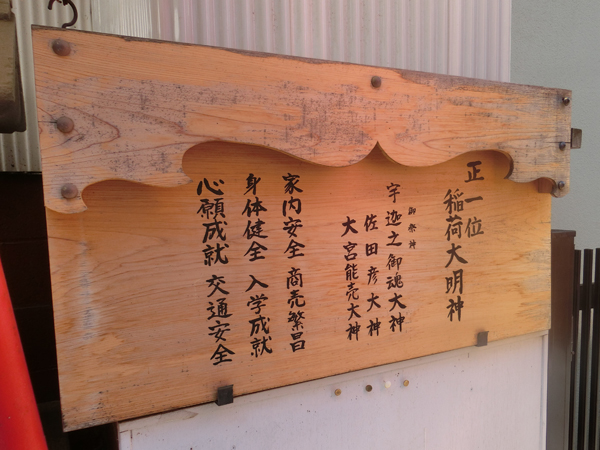 正一位
稲荷大明神
御祭神
宇迦之御魂大神
佐田彦大神
大宮能売大神
家内安全 商売繁昌
身体健全 入学成就
心願成就 交通安全